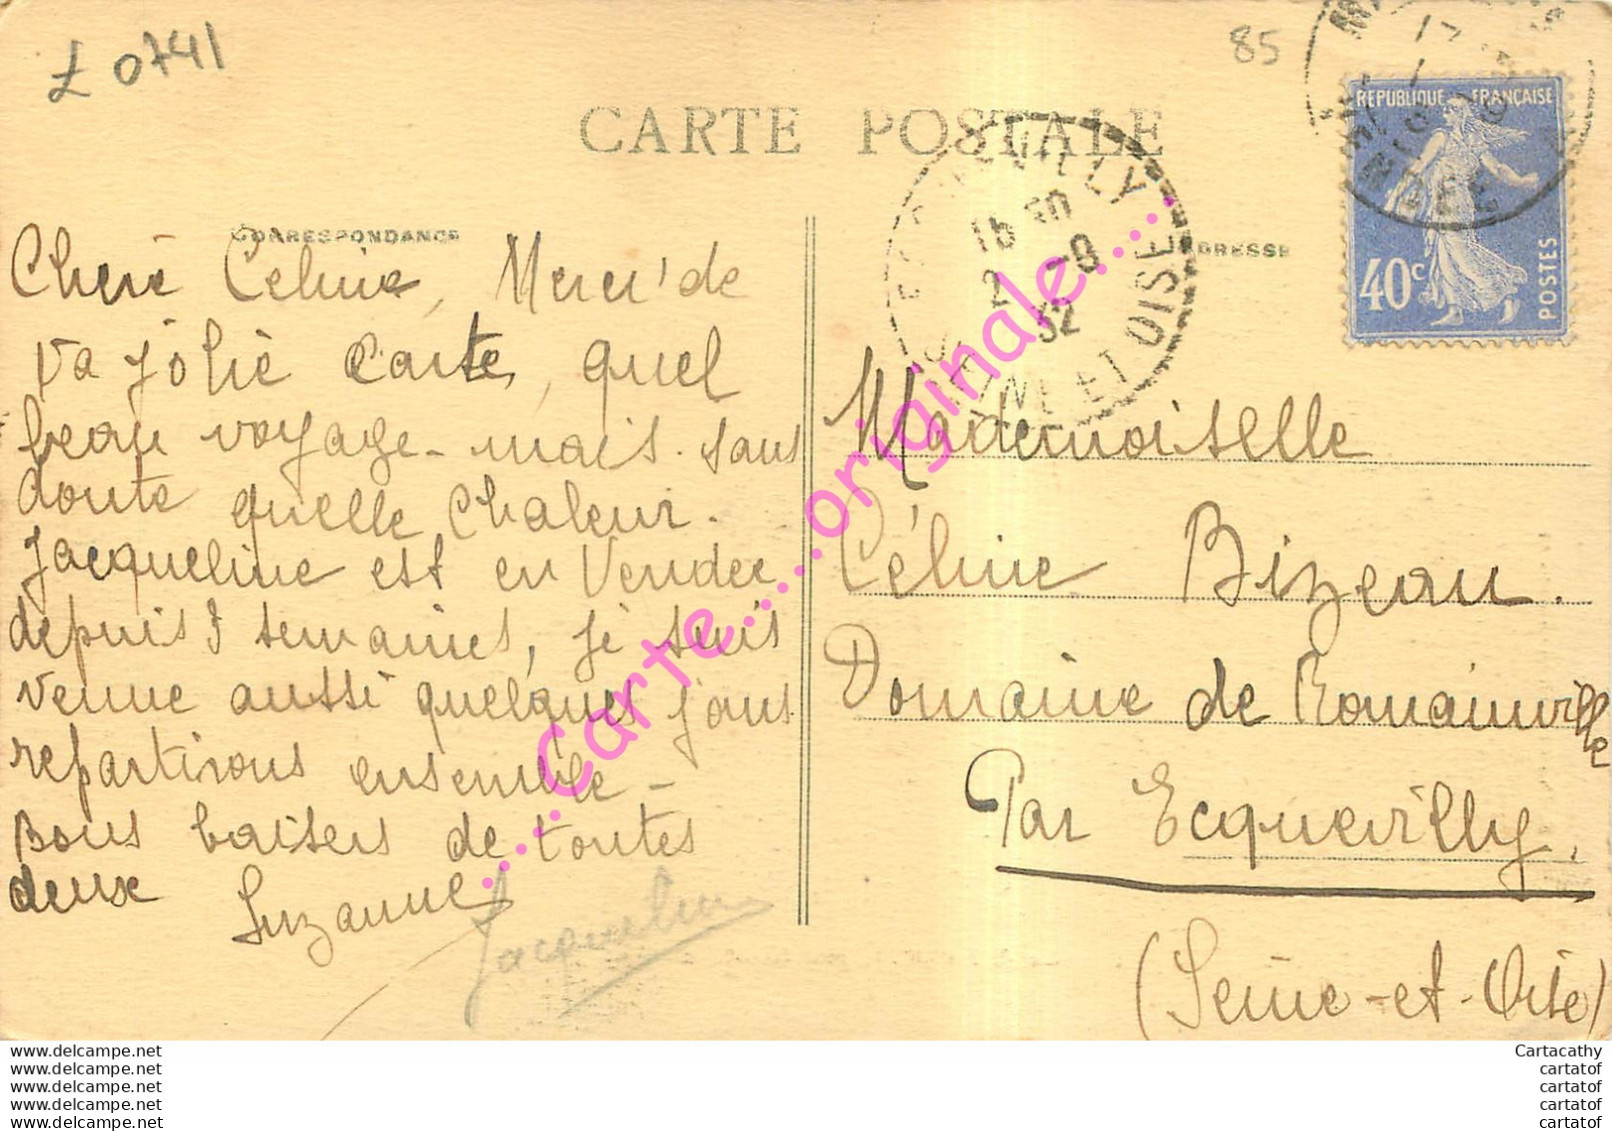 £ 0741
85
CARTE POSTALE
RÉPUBLIQUE FRANÇAISE
40c
POSTES
VENDÉE
ECQUEVILLY
16 30
2 -9
32
SEINE ET OISE
CORRESPONDANCE
ADRESSE
Chère Céline, Merci de
ta jolie Carte, quel
beau voyage - mais. sans
doute quelle Chaleur.
Jacqueline est en Vendée
depuis 3 semaines, je suis
venue aussi quelques jours
repartirons ensemble -
Bons baisers de toutes
deux Suzanne
Jacqueline
Mademoiselle
Céline Bizeau.
Domaine de Romainville
Par Ecquevilly,
(Seine-et-Oise)
....Carte.....originale.....
www.delcampe.net
www.delcampe.net
www.delcampe.net
www.delcampe.net
www.delcampe.net
Cartacathy
cartatof
cartatof
cartatof
cartatof